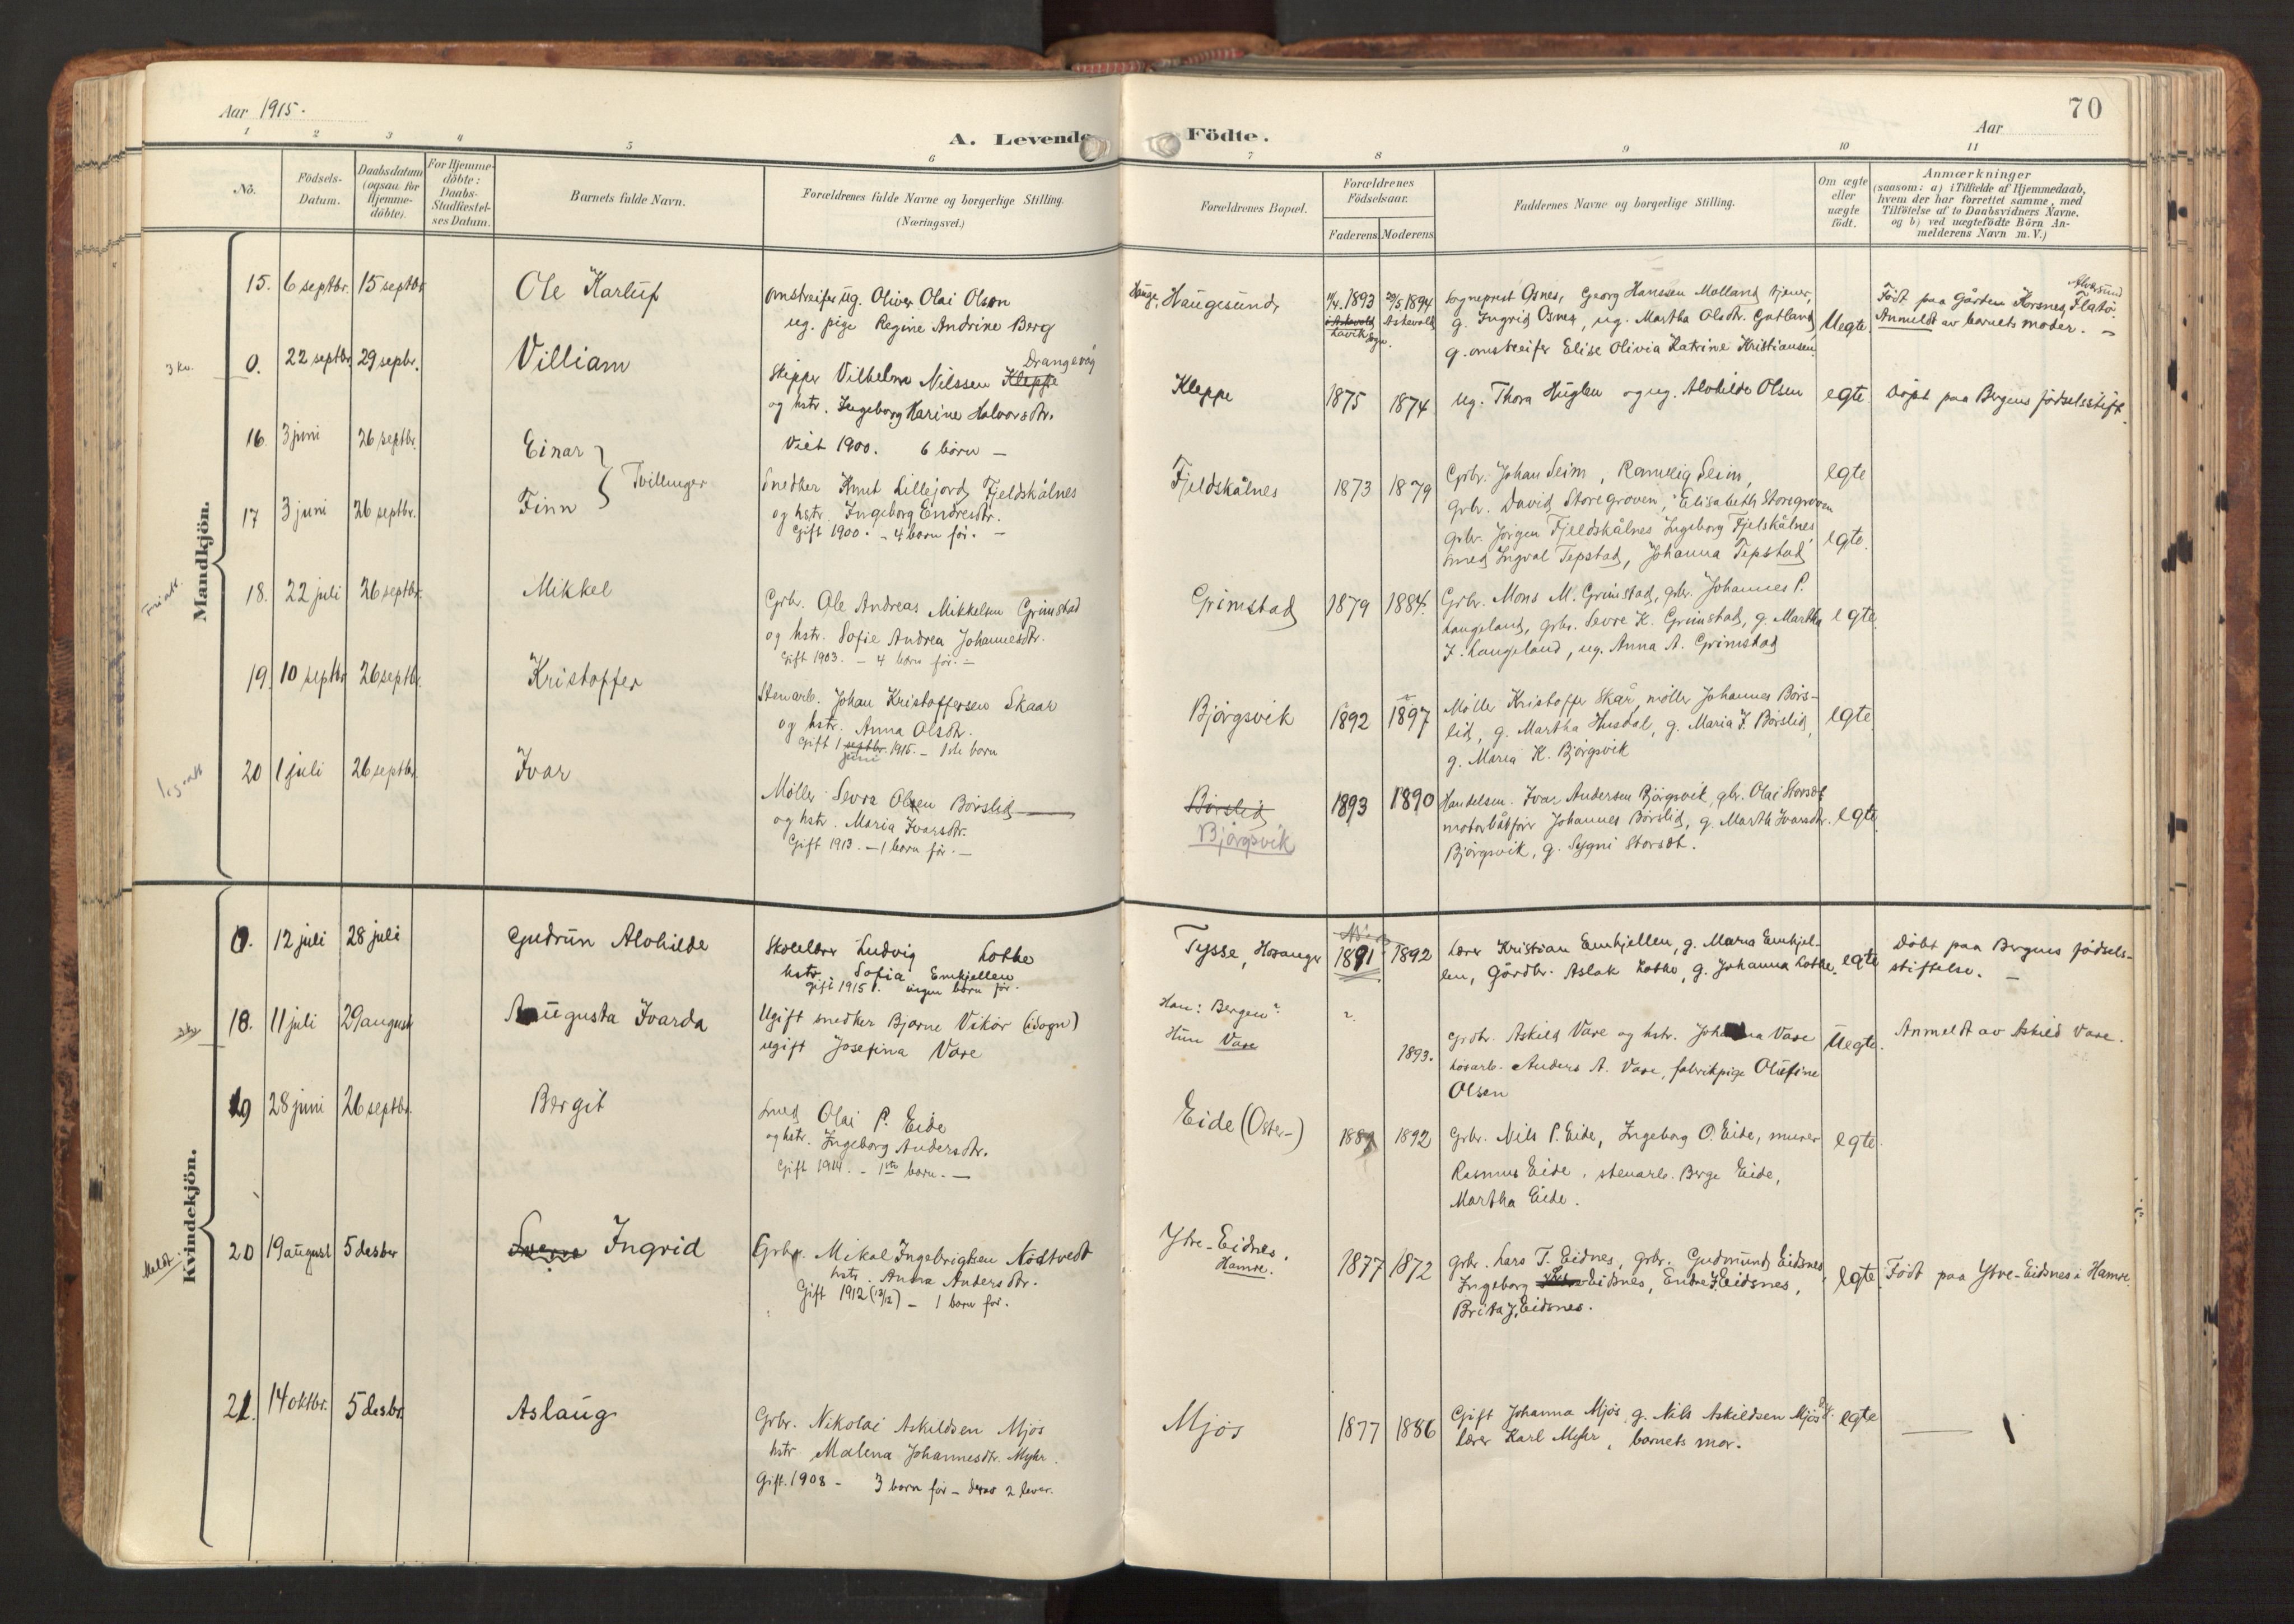 Aar 1915.
70
Aar
A. Levende Födte.
1 2 3 4 5 6 7 8 9 10 11
No.
Födsels-Datum.
Daabsdatum (ogsaa for Hjemme-döbte).
For Hjemme-döbte: Daabs-Stadfæstel-ses Datum.
Barnets fulde Navn.
Forældrenes fulde Navne og borgerlige Stilling.
(Næringsvei.)
Forældrenes Bopæl.
Forældrenes Födselsaar.
Faderens Moderens
Faddernes Navne og borgerlige Stilling.
Om ægte eller uægte födt.
Anmærkninger
(saasom: a) i Tilfælde af Hjemmedaab,
hvem der har forrettet samme, med
Tilföielse af to Daabsvidners Navne.
og b) ved uægtefödte Börn An-
melderens Navn m. V.)
Mandkjön.
15. 6 septbr. 15 septbr
Ole Karluf
omstreifer ug. Oliver Olai Olson
ug. pige Regine Andrine Berg
Haugesund
1893 1894
Askevold
Sogneprest Osnes, Georg Hanssen Molland tjener,
g. Ingrid Osnes, ug. Martha Olsdtr. Gatland
g. omstreifer Elise Olivia Katrine Kristiansen
Uegte
Født paa Gården Korsnes, Flatö. Alversund
Anmeldt av barnets moder.
3 kv.
0. 22 septbr 29 sepbr.
William
Skipper Vilhelm Nilssen Kleppe Drangevåg
og hstr. Ingeborg Karine Halvorsdtr.
Viet 1900. 6 börn —
Kleppe
1875 1874
ug. Thora Huglen og ug. Alvhilde Olsen
egte
Döpt paa Bergens födselsstift.
16. 3 juni 26 septbr.
Einar
17 3 juni 26 septbr.
Finn
Tvillinger
Snedker Knut Lillejord Fjeldskålnes
og hstr. Ingeborg Endresdtr.
Gift 1900. - 4 barn för. -
Fjeldskålnes
1873 1879
Grbr. Johan Seim, Ranveig Seim,
Grbr. David Storegroven, Elisabeth Storegroven
Grbr. Jörgen Fjeldskålnes Ingeborg Fjelskålnes,
smed Ingval Tepstad, Johanna Tepstad
egte
egte.
18. 22 juli 26 septbr.
Mikkel
Grbr. Ole Andreas Mikkelsen Grimstad
og hstr. Sofie Andrea Johannesdtr.
Gift 1903. - 4 barn för. -
Grimstad
1879 1884.
Grbr. Mons M. Grimstad, grbr. Johannes P.
Langeland, grbr. Sevre K. Grimstad, g. Martha
J. Langeland, ug. Anna A. Grimstad
egte.
19. 10 septbr 26 septbr.
Kristoffer
Stenarb. Johan Kristoffersen Skaar
og hstr. Anna Olsdtr.
Gift 1 septbr. 1915. - 1ste barn
juni
Bjørgsvik
1892 1897
Møller Kristoffer Skår, møller Johannes Börs-
lid, g. Martha Husdal, g. Maria J. Börslid,
g. Maria K. Bjørgsvik
egte
20 1 juli 26 septbr.
Ivar
Møller Sevre Olsen Börslid
og hstr. Maria Ivarsdtr.
Gift 1913. - 1 barn för. -
Börslid
Bjørgsvik
1893 1890
Handelsm. Ivar Andersen Bjørgsvik, gbr. Olai
motorbåtförer Johannes Börslid, g. Marth Ivarsdtr.
Bjørgsvik, g.
egte.
Kvindekjön.
12 juli 28 juli
Gudrun Alvhilde
Skolelærer Ludvig Lothe
hstr. Sofia Emhjellen
gift 1915. ingen barn för.
Tysse, Hosanger
1891 1892
Lærer Kristian Emhjellen, g. Maria Emhjel-
len, Gårdbr. Aslak Lothe, g. Johanna Lothe.
egte
Döbt paa Bergens födsels-
stiftelse. -
18. 11 juli 29 august
Augusta Ivarda
Ugift snedker Bjarne Vikör (i Sogn)
ugift Josefina Vare
Han: Bergen?
Hun Vare
? 1893.
Grbr. Askild Vare og hstr. Johanna Vare
lösarb. Anders A. Vare, fabrikpige Olufine
Olsen
Uegte.
Anmeldt av Askild Vare.
19 28 juni 26 septbr.
Bergit
Smed Olai P. Eide
og hstr. Ingeborg Andersdtr.
Gift 1914. - 1ste barn. -
Eide (Oster-)
1892
Grbr. Nils P. Eide, Ingeborg O. Eide, murer
Rasmus Eide, stenarb. Berge Eide,
Martha Eide.
egte.
20 19 august 5 desber
Ingrid
Grbr. Mikal Ingebrigtsen Nödtvedt
hstr. Anna Andersdtr.
Gift 1912 (12/12) - 1 barn för.
Ytre-Eidnes,
Hamre.
1877 1872
grbr. Lars T. Eidnes, grbr. Gudmund Eidsnes,
Ingeborg Eidsnes, Endre J. Eidsnes,
Brita J. Eidsnes.
egte.
Födt paa Ytre-Eidsnes i Hamre.
21. 14 oktbr. 5 desbr.
Aslaug
Grbr. Nikolai Askildsen Mjös
hstr Malena Johannesdtr. Myhr.
Gift. 1908 - 3 barn för - derav 2 lever.
Mjös
1877 1886
Gift Johanna Mjös, g. Nils Askildsen Mjös
lærer Karl Myhr, barnets mor.
egte